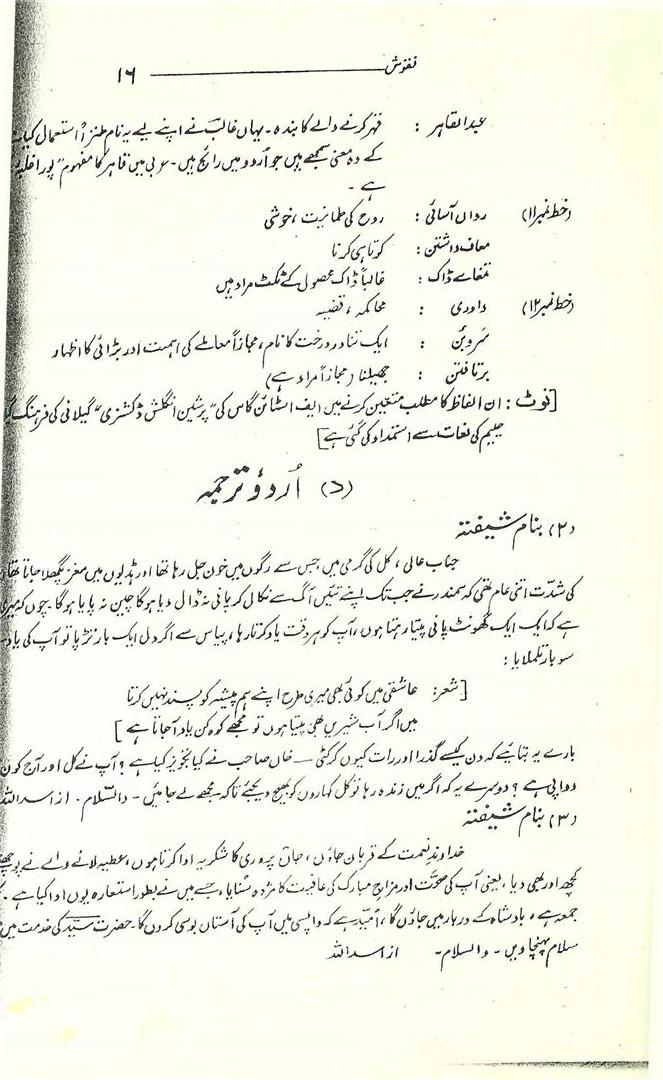 نقوش ــــــــــــــــ ۱۶
عبدالقاہر : قہر کرنے والے کا بندہ۔ یہاں غالب نے اپنے لیے یہ نام طنزاً استعمال کیا
کے وہ معنی سمجھے ہیں جو اُردو میں رائج ہیں۔ عربی میں قاہر کا مفہوم "پورا غلبہ
ہے۔
(خط نمبر ۱۱) رواں آسائی : روح کی طمانیت، خوشی
معاف داشتن : کوتاہی کرنا
تمغائے ڈاک : غالباً ڈاک محصول کے ٹکٹ مراد ہیں
(خط نمبر ۱۲) داوری : محاکمہ، قضیہ
سَروبُن : ایک تناور درخت کا نام، مجازاً معاملے کی اہمیت اور بڑائی کا اظہار
برتافتن : جھیلنا (مجازاً مراد ہے)
[نوٹ : ان الفاظ کا مطلب متعین کرنے میں ایف اسٹائن گاس کی "پرشین انگلش ڈکشنری" گیلانی کی فرہنگ
حییم کی لغات سے استمداد کی گئی ہے]
(د) اُردو ترجمہ
(۲) بنام شیفتہ
جناب عالی، کل کی گرمی میں جس سے رگوں میں خون جل رہا تھا اور ہڈیوں میں مغز پگھلا جاتا تھا
کی شدّت اتنی عام تھی کہ سمندر نے جب تک اپنے تئیں آگ سے نکال کر پانی نہ ڈال دیا ہوگا چین نہ پایا ہوگا۔ چوں کہ میری
ہے کہ ایک ایک گھونٹ پانی پیتا رہتا ہوں، آپ کو ہر وقت یاد کرتا رہا، پیاس سے اگر دل ایک بار تڑپا تو آپ کی یاد
سو بار تلملایا :
[شعر: عاشقی میں کوئی بھی میری طرح اپنے ہم پیشہ کو پسند نہیں کرتا
میں اگر آب شیریں بھی پیتا ہوں تو مجھے کوہ کن یاد آجاتا ہے]
بارے یہ بتائیے کہ دن کیسے گذرا اور رات کیوں کر کٹی — خاں صاحب نے کیا تجویز کیا ہے؟ آپ نے کل اور آج کون
دوا پی ہے؟ دوسرے یہ کہ اگر میں زندہ رہا تو کل کہاروں کو بھیج دیجئے تاکہ مجھے لے جائیں۔ والسّلام۔ از اسد اللہ
(۳) بنام شیفتہ
خداوندِ نعمت کے قربان جاؤں، جان پروری کا شکریہ ادا کرتا ہوں، عطیہ لانے والے نے پوچھے
کچھ اور بھی دیا، یعنی آپ کی صحّت اور مزاج مبارک کی عافیت کا مژدہ سُنایا، جسے میں نے بطور استعارہ یوں ادا کیا ہے۔
جمعہ ہے، بادشاہ کے دربار میں جاؤں گا، اُمید ہے کہ واپسی میں آپ کی آستاں بوسی کروں گا۔ حضرت سیّد کی خدمت میں
سلام پہنچاویں۔ والسلام۔ از اسد اللہ